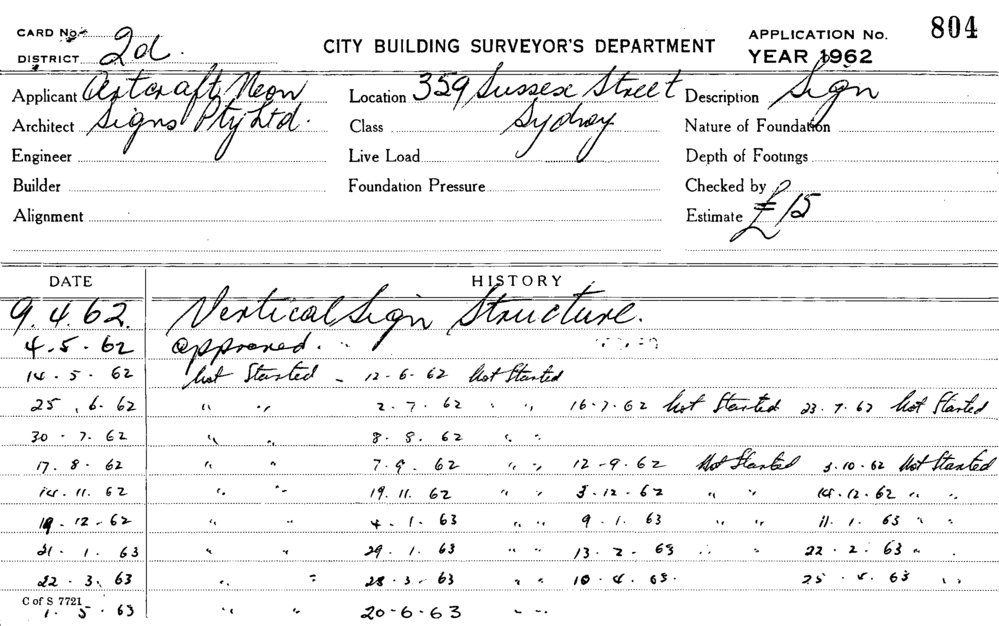 CARD No. 2d. CITY BUILDING SURVEYOR'S DEPARTMENT APPLICATION No. 804
DISTRICT YEAR 1962
Applicant Artcraft Neon Location 359 Sussex Street Description Sign
Architect Signs Pty Ltd. Class Sydney Nature of Foundation
Engineer Live Load Depth of Footings
Builder Foundation Pressure Checked by
Alignment Estimate £15
DATE HISTORY
9.4.62. Vertical Sign Structure.
4.5.62 approved.
14.5.62 Not Started - 12-6-62 Not Started
25.6.62 " " 2.7.62 " " 16-7-62 Not Started 23.7.62 Not Started
30.7.62 " " 8.8.62 " "
17.8.62 " " 7.9.62 " " 12-9-62 Not Started 3.10.62 Not Started
14.11.62 " " 19.11.62 " " 3-12-62 " " 14.12.62 " "
19-12-62 " " 4.1.63 " " 9.1.63 " " 11.1.63 " "
21.1.63 " " 29.1.63 " " 13.2.63 " " 22.2.63 " "
22.3.63 " " 28.3.63 " " 10.4.63. 25.4.63 " "
C of S 7721
1.5.63 " " 20-6-63 " "